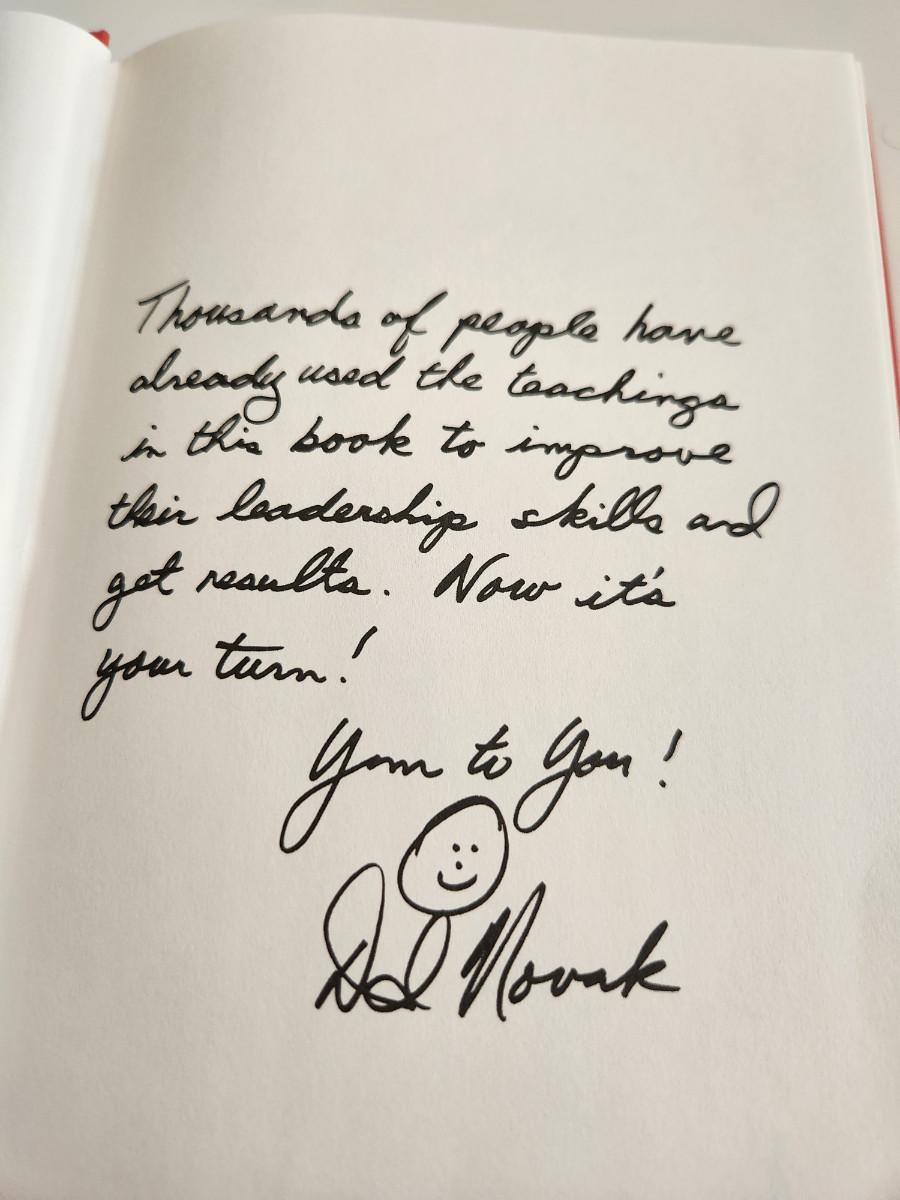 Thousands of people have
already used the teachings
in this book to improve
their leadership skills and
get results. Now it's
your turn!
Yum to You!
Novak